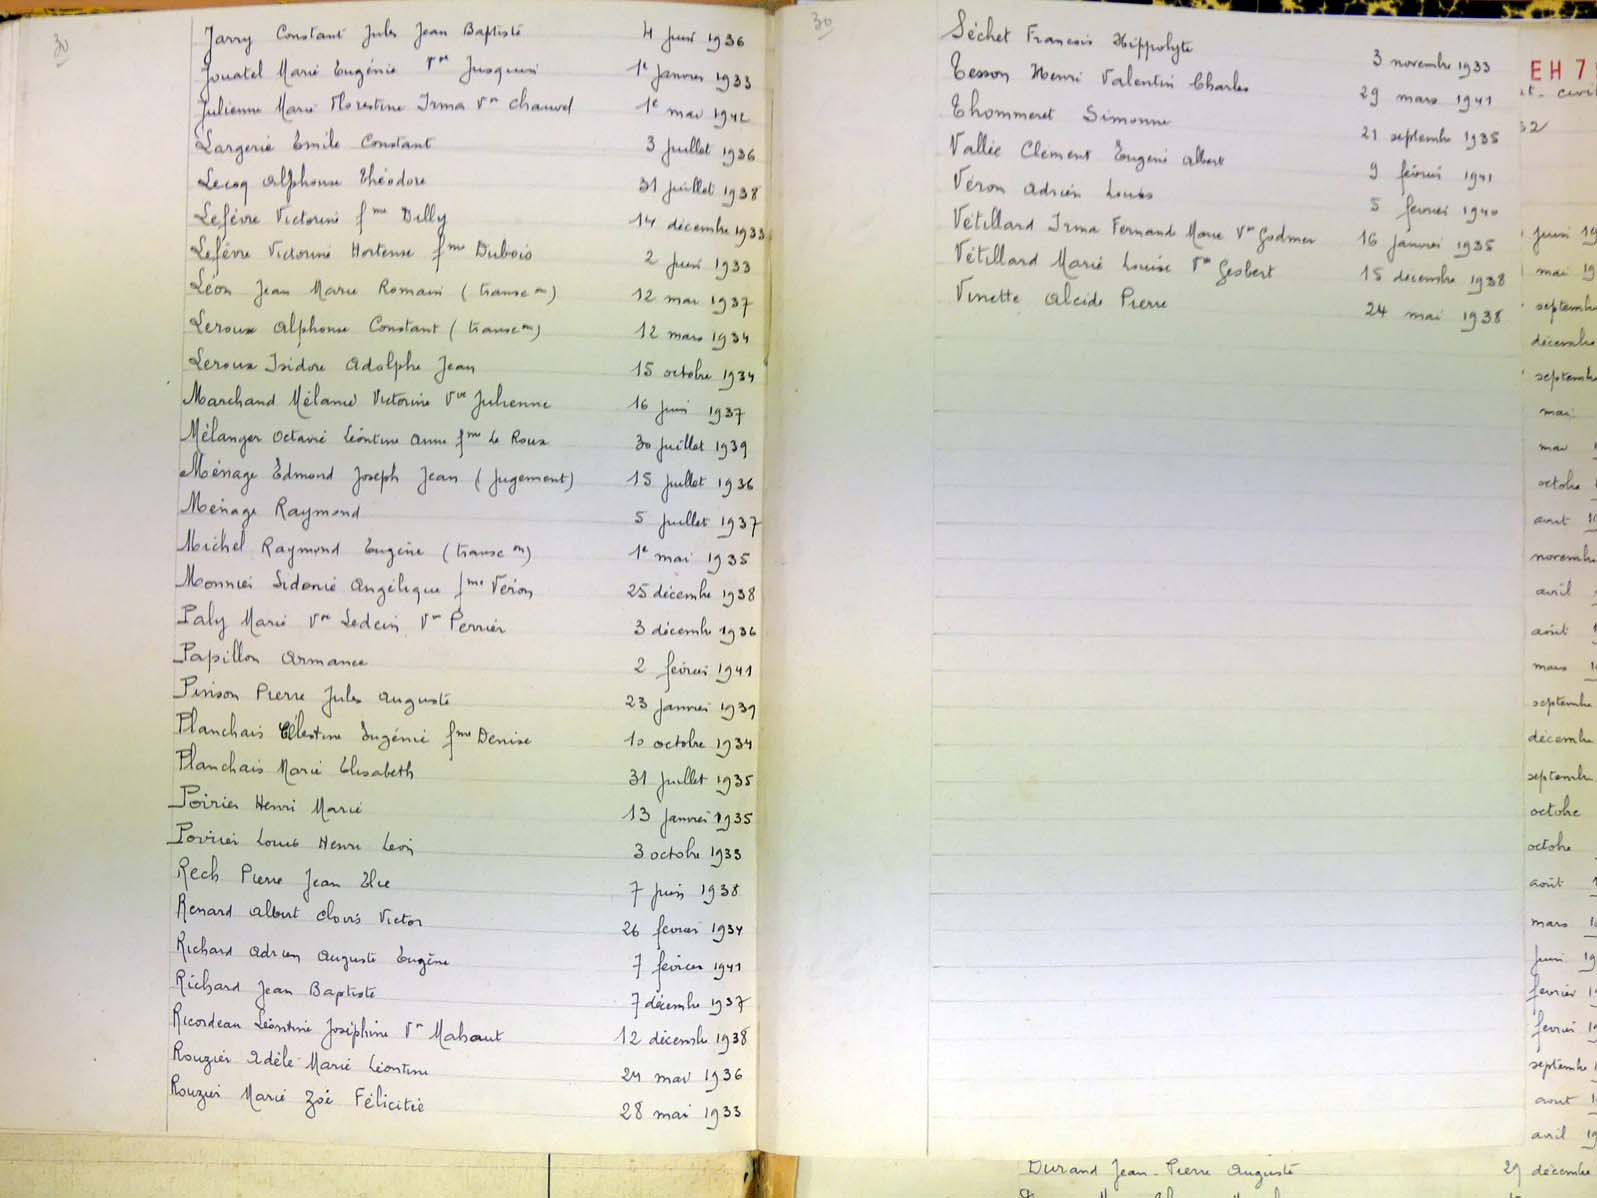 30
Jarry Constant Jules Jean Baptiste 4 juin 1936
Jouatel Marie Eugénie Vve Jusquin 1e janvier 1933
Julienne Marie Florestine Irma Vve Chauvel 1e mai 1942
Largerie Emile Constant 3 juillet 1936
Lecoq Alphonse Théodore 31 juillet 1938
Lefèvre Victorine fme Dilly 14 décembre 1933
Lefèvre Victorine Hortense fme Dubois 2 juin 1933
Léon Jean Marie Romain (transcon) 12 mai 1937
Leroux Alphonse Constant (transcon) 12 mars 1934
Leroux Isidore Adolphe Jean 15 octobre 1934
Marchand Mélanie Victorine Vve Julienne 16 juin 1937
Mélanger Octavie Léontine Anne fme Le Roux 30 juillet 1939
Ménage Edmond Joseph Jean (jugement) 15 juillet 1936
Ménage Raymond 5 juillet 1937
Michel Raymond Eugène (transcon) 1e mai 1935
Monnier Sidonie Angélique fme Véron 25 décembre 1938
Paly Marie Vve Ledein Vve Perrier 3 décembre 1936
Papillon Armance 2 février 1941
Pinson Pierre Jules Auguste 23 janvier 1939
Planchais Célestine Eugénie fme Denise 10 octobre 1934
Planchais Marie Elisabeth 31 juillet 1935
Poirier Henri Marie 13 janvier 1935
Poirier Louis Henri Léon 3 octobre 1933
Rech Pierre Jean Elie 7 juin 1938
Renard Albert Clovis Victor 26 février 1934
Richard Adrien Auguste Eugène 7 février 1941
Richard Jean Baptiste 7 décembre 1937
Ricordeau Léontine Joséphine Vve Mahaut 12 décembre 1938
Rouzier Adèle Marie Léontine 24 mai 1936
Rouzier Marie Zoé Félicitée 28 mai 1933
30
Séchet François Hippolyte 3 novembre 1933
Tesson Henri Valentin Charles 29 mars 1941
Thommeret Simonne 21 septembre 1935
Vallée Clément Eugène Albert 9 février 1941
Véron Adrien Louis 5 février 1940
Vétillard Irma Fernande Marie Vve Godmer 16 janvier 1935
Vétillard Marie Louise Vve Gesbert 15 décembre 1938
Vinette Alcide Pierre 24 mai 1938
EH 7
t. civil
32
juin 19
mai 19
septembre
décembre
septembre
mai
mai
octobre
août
novembre
avril
août
mars
septembre
décembre
septembre
octobre
octobre
août
mars
juin 19
février
février
septembre
août
avril
Durand Jean-Pierre Auguste 29 décembre